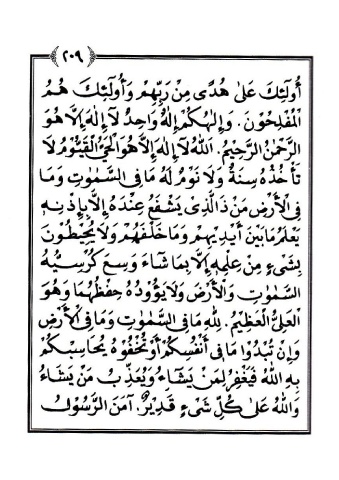 ﴿٢٠٩﴾
أُولَٰئِكَ عَلَىٰ هُدًى مِنْ رَبِّهِمْ وَأُولَٰئِكَ هُمُ
الْمُفْلِحُونَ. وَإِلَٰهُكُمْ إِلَٰهٌ وَاحِدٌ لَآ إِلَٰهَ إِلَّا هُوَ
الرَّحْمَٰنُ الرَّحِيْمُ. اَللهُ لَآ إِلَٰهَ إِلَّا هُوَ الْحَيُّ الْقَيُّوْمُ لَا
تَأْخُذُهُ سِنَةٌ وَلَا نَوْمٌ لَهُ مَا فِي السَّمٰوٰتِ وَمَا
فِي الْأَرْضِ مَنْ ذَا الَّذِيْ يَشْفَعُ عِنْدَهُ إِلَّا بِإِذْنِهِ
يَعْلَمُ مَا بَيْنَ أَيْدِيْهِمْ وَمَا خَلْفَهُمْ وَلَا يُحِيْطُوْنَ
بِشَيْءٍ مِنْ عِلْمِهِ إِلَّا بِمَا شَاءَ وَسِعَ كُرْسِيُّهُ
السَّمٰوٰتِ وَالْأَرْضَ وَلَا يَؤُوْدُهُ حِفْظُهُمَا وَهُوَ
الْعَلِيُّ الْعَظِيْمُ. لِلهِ مَا فِي السَّمٰوٰتِ وَمَا فِي الْأَرْضِ
وَإِنْ تُبْدُوْا مَا فِيْ أَنْفُسِكُمْ أَوْ تُخْفُوْهُ يُحَاسِبْكُمْ
بِهِ اللهُ فَيَغْفِرُ لِمَنْ يَشَاءُ وَيُعَذِّبُ مَنْ يَشَاءُ
وَاللهُ عَلَىٰ كُلِّ شَيْءٍ قَدِيْرٌ. آمَنَ الرَّسُوْلُ